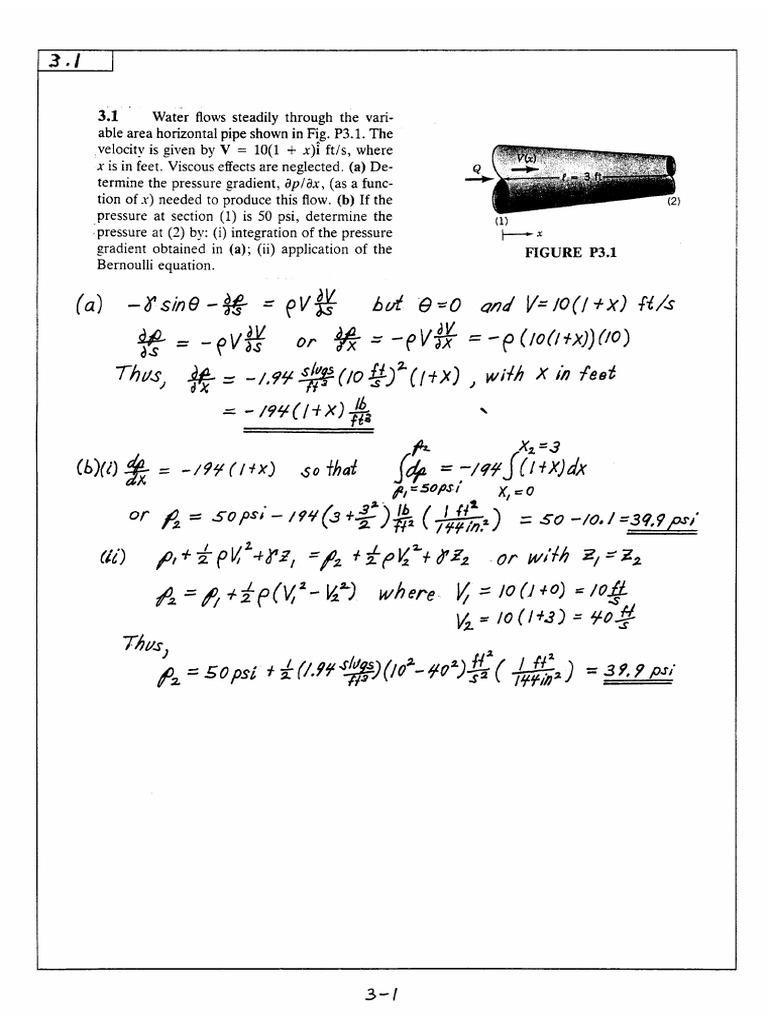 3.1
3.1 Water flows steadily through the vari-
able area horizontal pipe shown in Fig. P3.1. The
velocity is given by V = 10(1 + x)î ft/s, where
x is in feet. Viscous effects are neglected. (a) De-
termine the pressure gradient, ∂p/∂x, (as a func-
tion of x) needed to produce this flow. (b) If the
pressure at section (1) is 50 psi, determine the
pressure at (2) by: (i) integration of the pressure
gradient obtained in (a); (ii) application of the
Bernoulli equation.
Q
V(x)
ℓ = 3 ft
(1)
(2)
x
FIGURE P3.1
(a) -γ sinθ - ∂p/∂s = ρV ∂V/∂s but θ=0 and V=10(1+x) ft/s
∂p/∂s = -ρV ∂V/∂s or ∂p/∂x = -ρV ∂V/∂x = -ρ(10(1+x))(10)
Thus, ∂p/∂x = -1.94 slugs/ft³ (10 ft/s)² (1+x), with x in feet
= -194(1+x) lb/ft³
(b)(i) dp/dx = -194(1+x) so that ∫_{p₁=50psi}^{p₂} dp = -194 ∫_{x₁=0}^{x₂=3} (1+x)dx
or p₂ = 50psi - 194(3 + 3²/2) lb/ft² (1 ft²/144in.²) = 50 - 10.1 = 39.9 psi
(ii) p₁ + ½ρV₁² + γz₁ = p₂ + ½ρV₂² + γz₂ or with z₁=z₂
p₂ = p₁ + ½ρ(V₁² - V₂²) where V₁ = 10(1+0) = 10 ft/s
V₂ = 10(1+3) = 40 ft/s
Thus,
p₂ = 50psi + ½(1.94 slugs/ft³)(10² - 40²) ft²/s² (1 ft²/144in²) = 39.9 psi
3-1